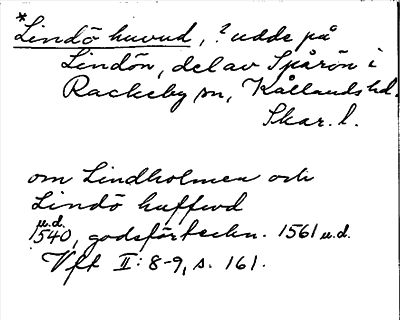 *Lindö huvud, ? udde på
Lindön, del av Spårön i
Rackeby sn, Kållands hd.
Skar. l.
om Lindholmen och
Lindö huffwd
u.d.
1540, godsförteckn. 1561 u.d.
Vft II: 8-9, s. 161.